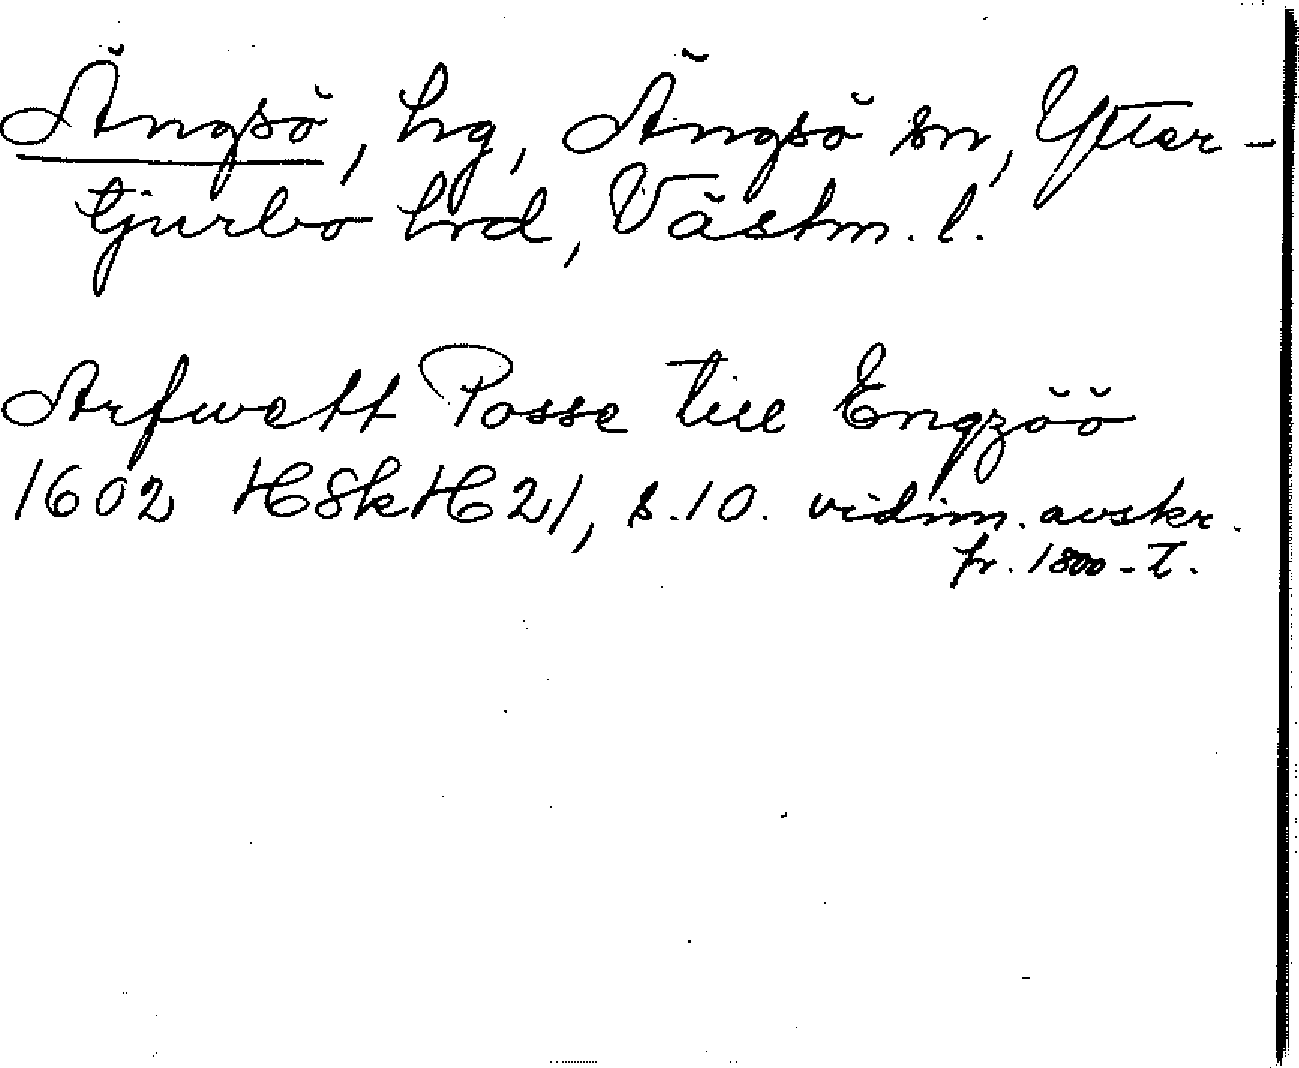 Ängsö, hg, Ängsö sn, Ytter-
tjurbo hrd, Västm. l.
Arfwett Posse till Engzöö
1602 HSkH21, s.10. vidim. avskr.
fr. 1800-t.